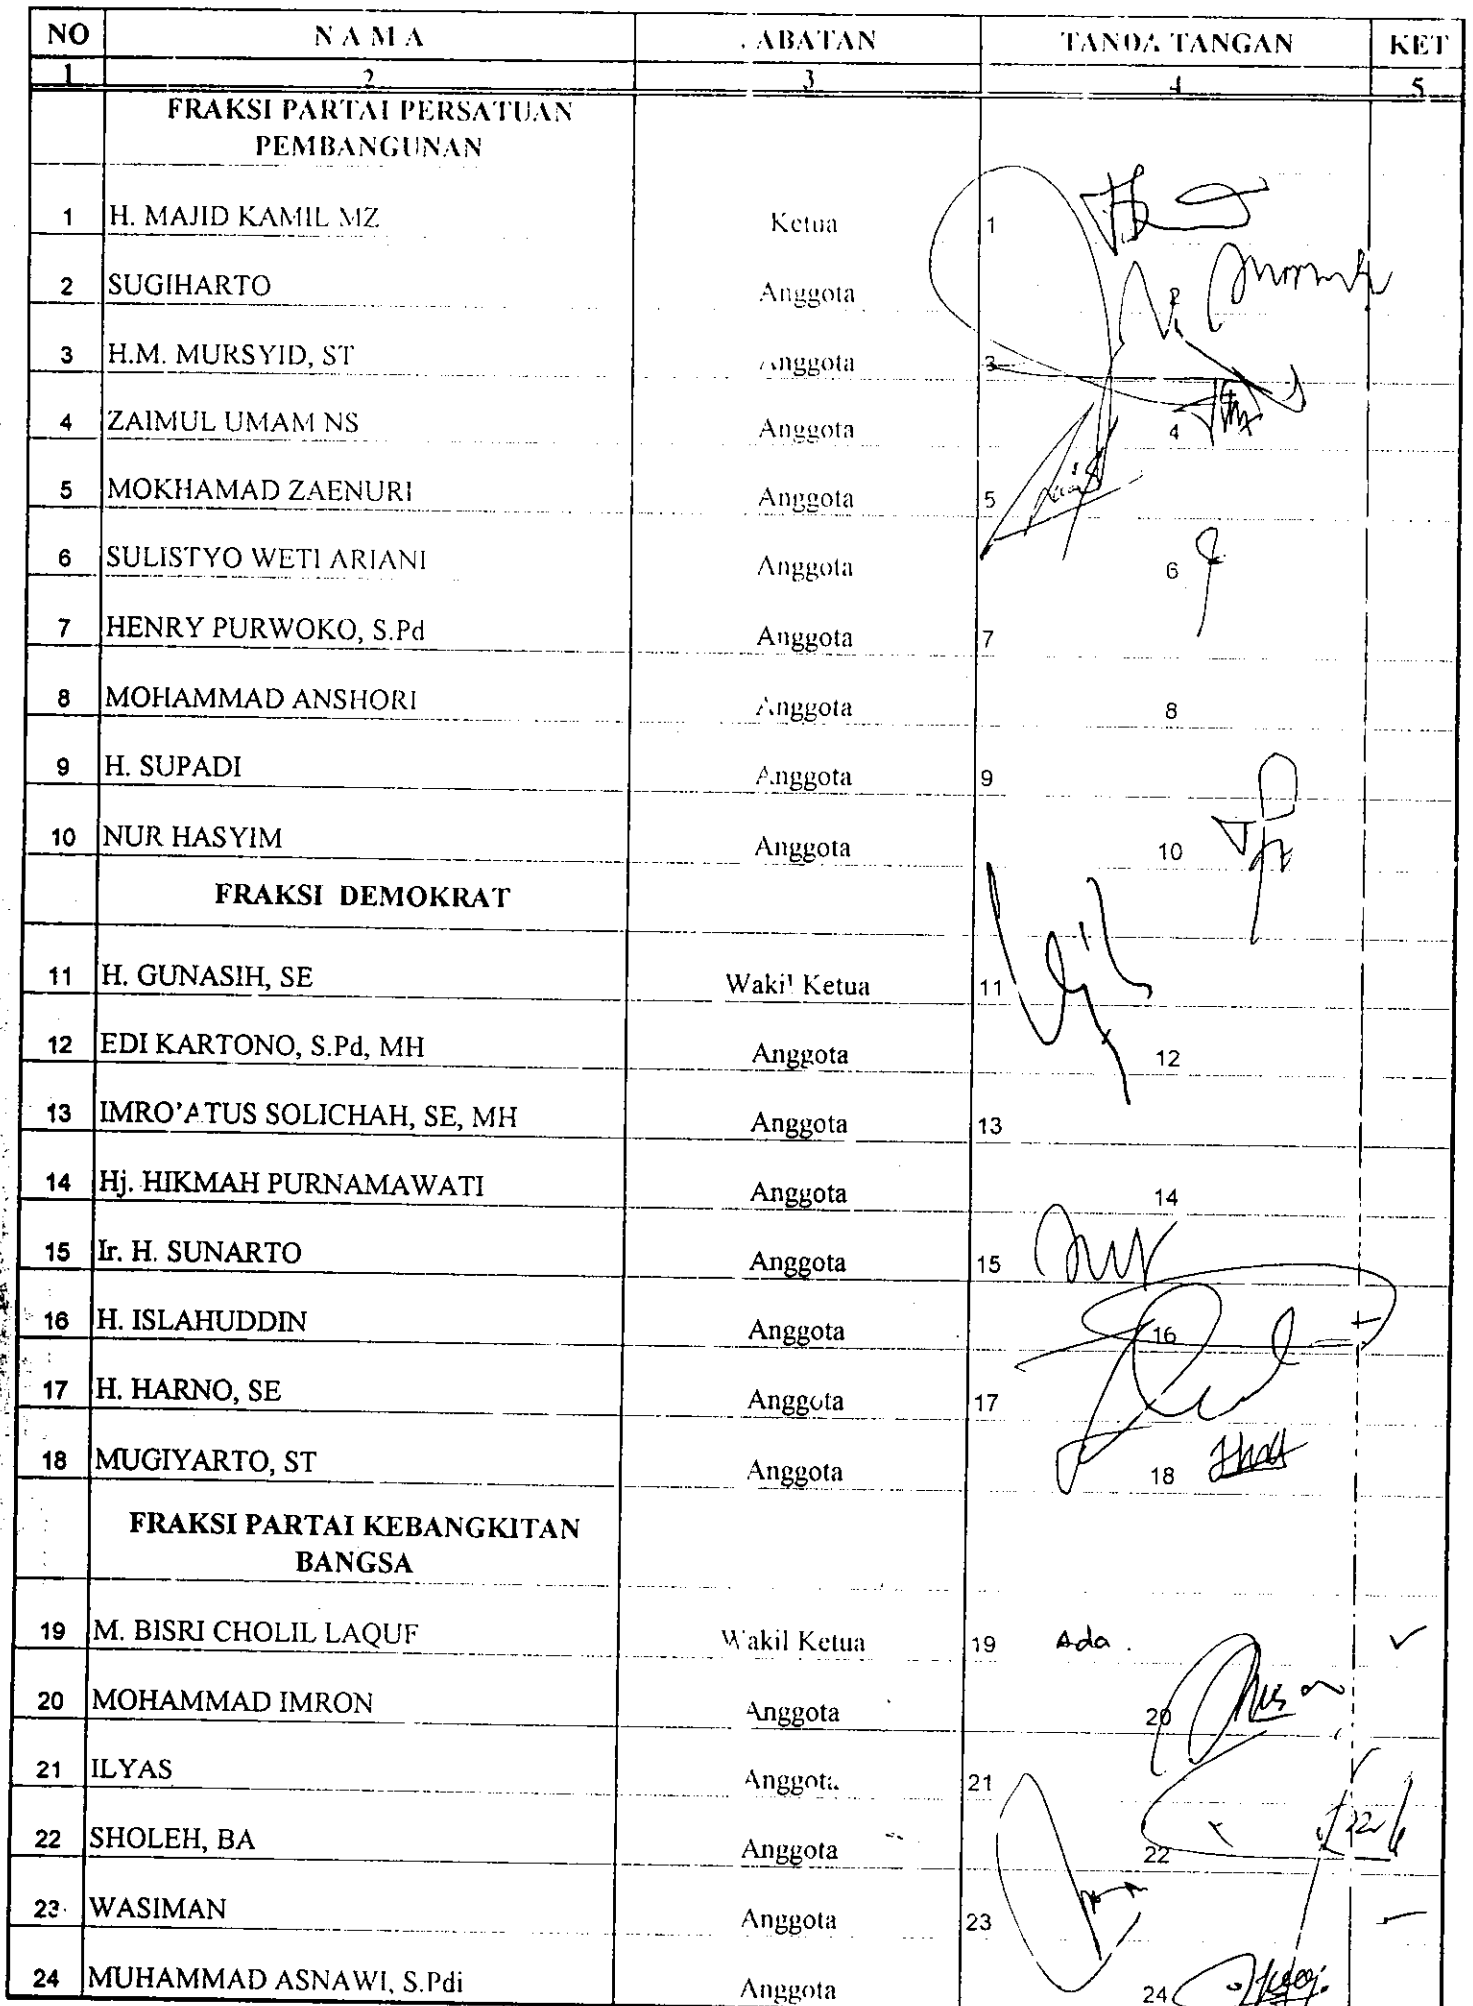 NO N A M A ABATAN TANDA TANGAN KET
1 2 3 4 5
FRAKSI PARTAI PERSATUAN
PEMBANGUNAN
1 H. MAJID KAMIL MZ Ketua 1
2 SUGIHARTO Anggota 2
3 H.M. MURSYID, ST Anggota 3
4 ZAIMUL UMAM NS Anggota 4
5 MOKHAMAD ZAENURI Anggota 5
6 SULISTYO WETI ARIANI Anggota 6
7 HENRY PURWOKO, S.Pd Anggota 7
8 MOHAMMAD ANSHORI Anggota 8
9 H. SUPADI Anggota 9
10 NUR HASYIM Anggota 10
FRAKSI DEMOKRAT
11 H. GUNASIH, SE Wakil Ketua 11
12 EDI KARTONO, S.Pd, MH Anggota 12
13 IMRO'ATUS SOLICHAH, SE, MH Anggota 13
14 Hj. HIKMAH PURNAMAWATI Anggota 14
15 Ir. H. SUNARTO Anggota 15
16 H. ISLAHUDDIN Anggota 16
17 H. HARNO, SE Anggota 17
18 MUGIYARTO, ST Anggota 18
FRAKSI PARTAI KEBANGKITAN
BANGSA
19 M. BISRI CHOLIL LAQUF Wakil Ketua 19 Ada . ✓
20 MOHAMMAD IMRON Anggota 20
21 ILYAS Anggota 21
22 SHOLEH, BA Anggota 22
23 WASIMAN Anggota 23
24 MUHAMMAD ASNAWI, S.Pdi Anggota 24